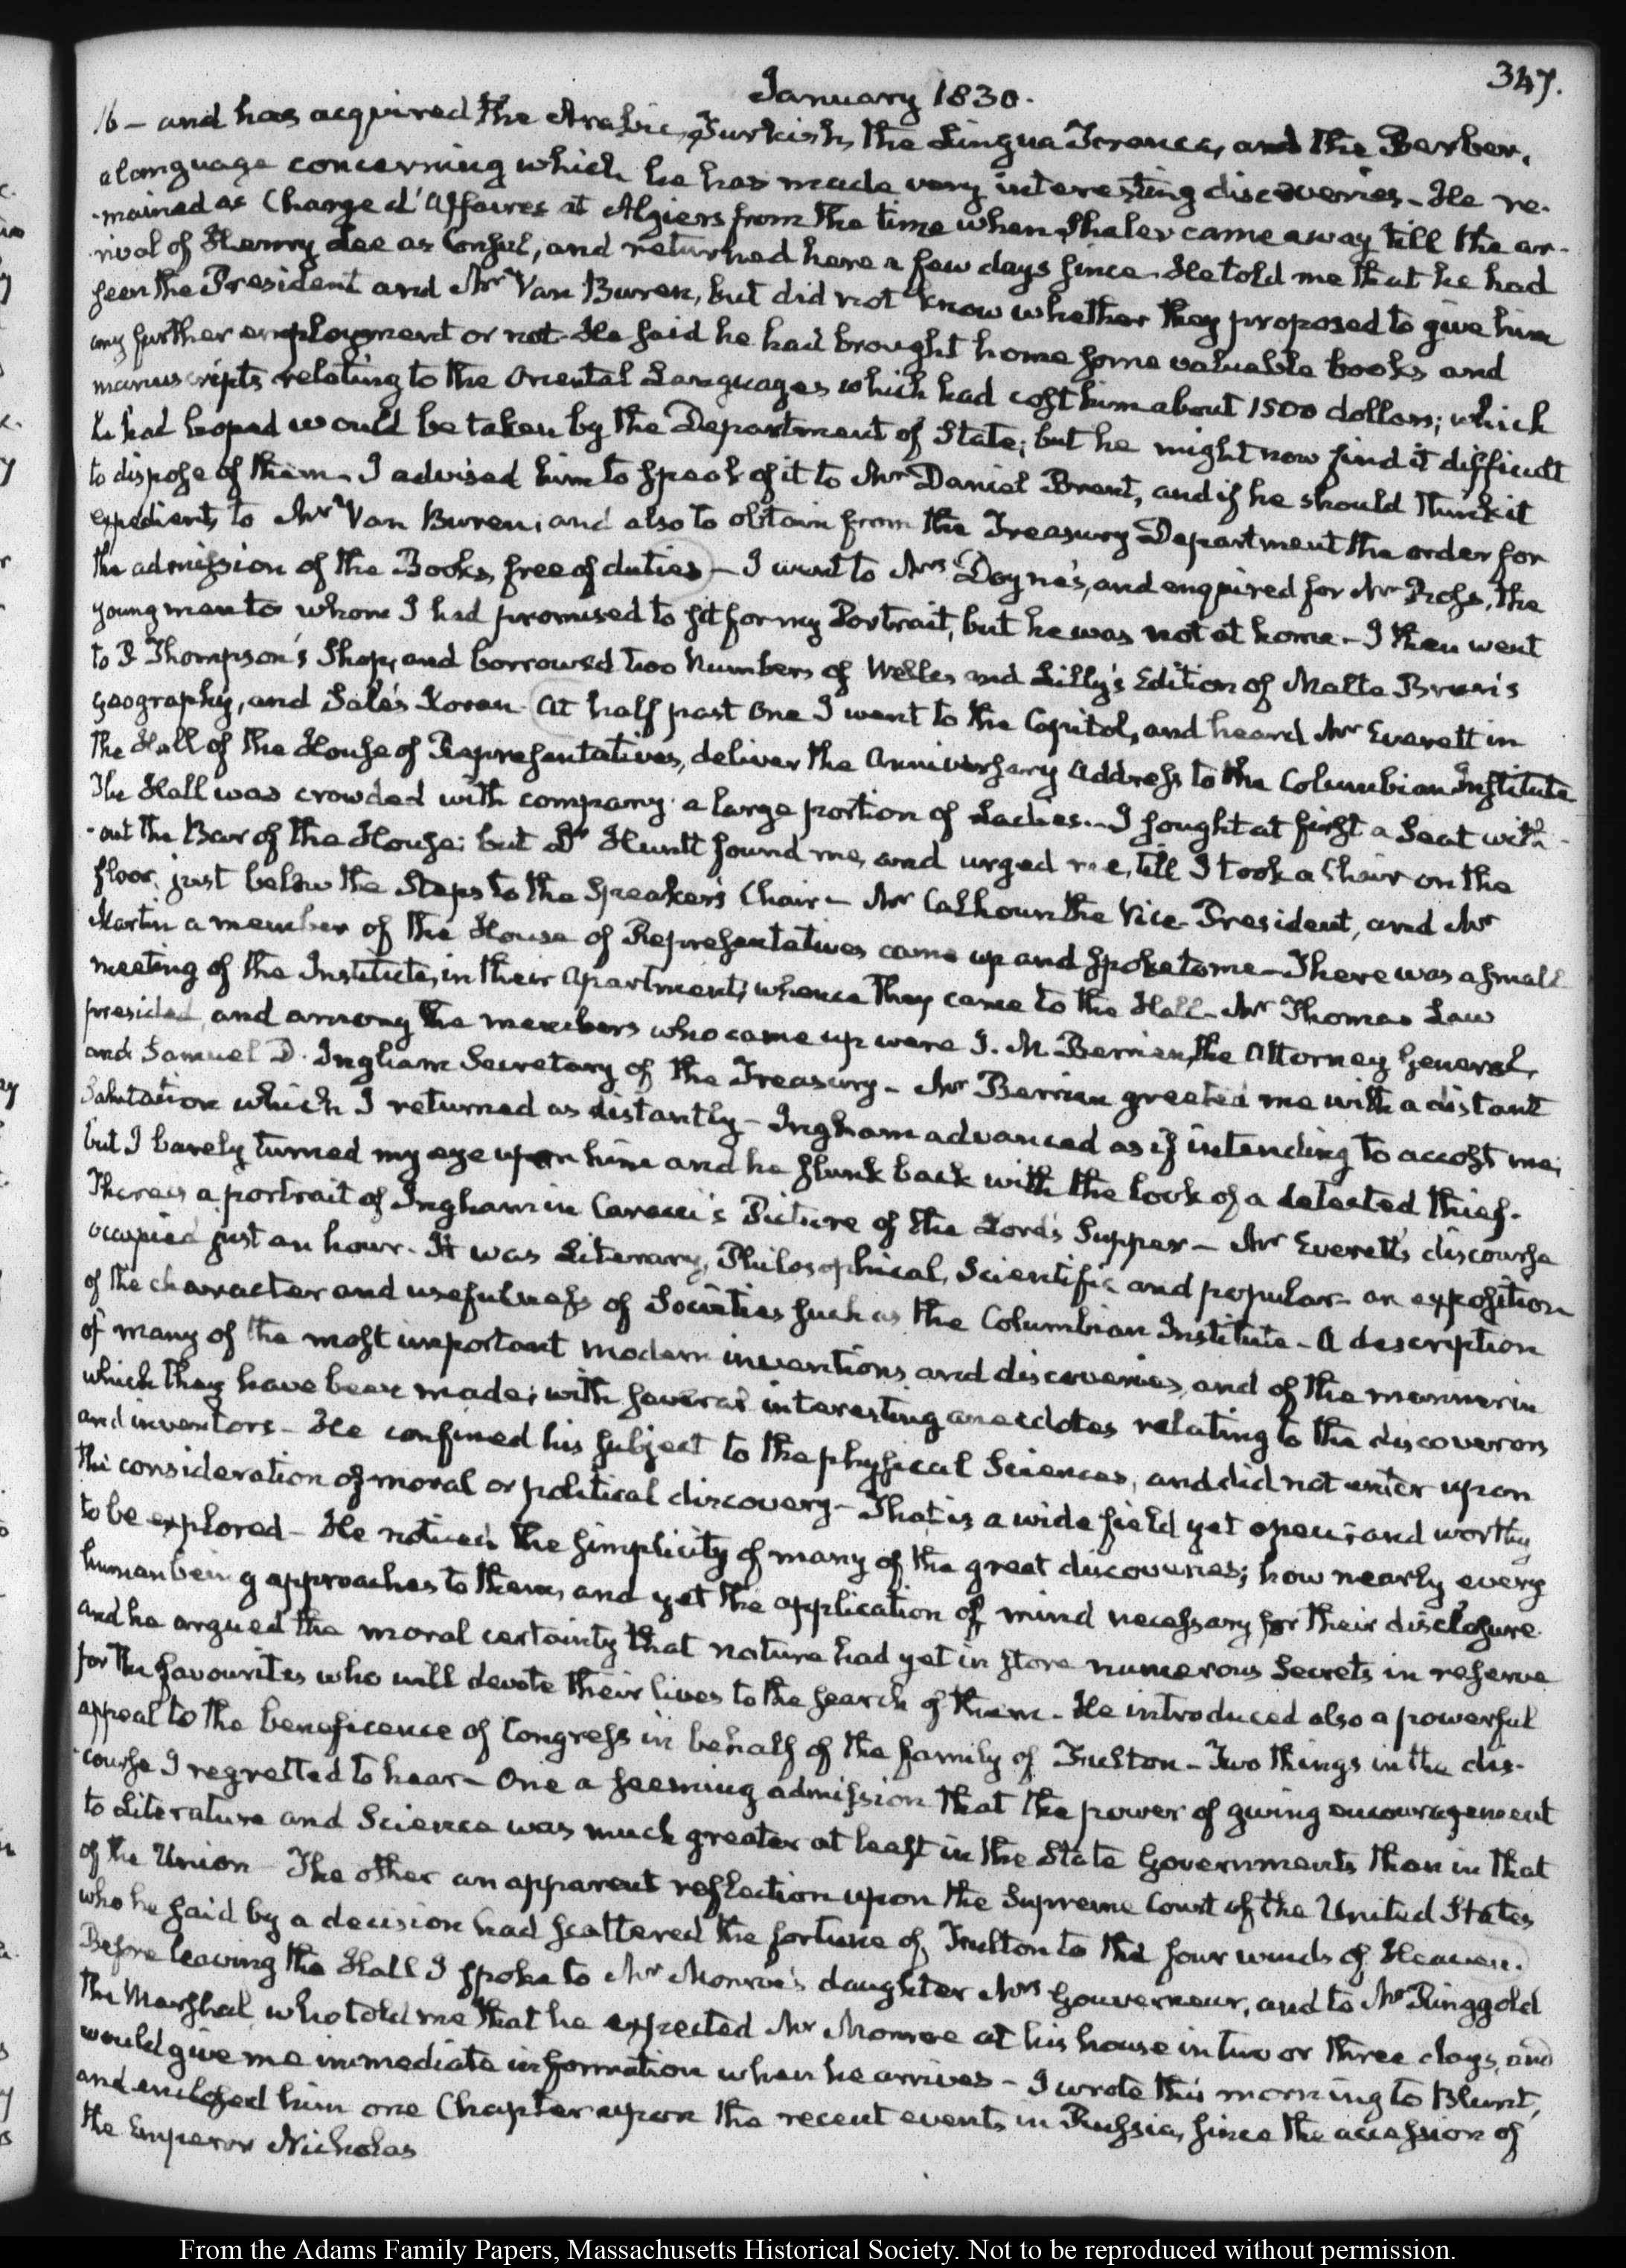 347.
January 1830.
16 — and has acquired the Arabic, Turkish, the Lingua Franca, and the Berber,
a language concerning which he has made very interesting discoveries — He re-
-mained as Chargé d'Affaires at Algiers from the time when Shaler came away till the ar-
-rival of Henry Lee as Consul, and returned here a few days since. He told me that he had
seen the President and Mr Van Buren, but did not know whether they proposed to give him
any further employment or not. He said he had brought home some valuable books and
manuscripts relating to the Oriental Languages which had cost him about 1500 dollars; which
he had hoped would be taken by the Department of State; but he might now find it difficult
to dispose of them — I advised him to speak of it to Mr Daniel Brent, and if he should think it
expedient, to Mr Van Buren; and also to obtain from the Treasury Department the order for
the admission of the Books, free of duties — I went to Mrs Doyne's, and enquired for Mr , the
young man to whom I had promised to sit for my Portrait, but he was not at home — I then went
to P Thompson's Shop, and borrowed two Numbers of Welles and Lilly's Edition of Malte Brun's
geography, and Sale's Koran. At half past One I went to the Capitol, and heard Mr Everett in
the Hall of the House of Representatives, deliver the Anniversary Address to the Columbian Institute
The Hall was crowded with company: a large portion of Ladies. — I sought at first a Seat with-
-out the Bar of the House; but Dr Huntt found me, and urged me, till I took a Chair on the
floor, just below the Steps to the Speaker's Chair — Mr Calhoun the Vice-President, and Mr
Martin a member of the House of Representatives came up and spoke to me — There was a small
meeting of the Institute, in their apartment; whence they came to the Hall — Mr Thomas Law
presided, and among the members who came up were J. M. Berrien, the Attorney General,
and Samuel D. Ingham Secretary of the Treasury — Mr Berrien greeted me with a distant
Salutation which I returned as distantly — Ingham advanced as if intending to accost me;
but I barely turned my eye upon him and he slunk back with the look of a detected thief.
There is a portrait of Ingham in Caracci's Picture of the Lord's Supper — Mr Everett's discourse
occupied just an hour. It was Literary, Philosophical, Scientific and popular — an exposition
of the character and usefulness of Societies such as the Columbian Institute — A description
of many of the most important modern inventions and discoveries, and of the manner in
which they have been made; with several interesting anecdotes relating to the discoverers
and inventors — He confined his subject to the physical Sciences, and did not enter upon
the consideration of moral or political discovery — That is a wide field yet open; and worthy
to be explored — He noticed the simplicity of many of the great discoveries; how nearly every
human being approaches to them, and yet the application of mind necessary for their disclosure.
and he argued the moral certainty that nature had yet in store numerous Secrets in reserve
for the favourites who will devote their lives to the search of them — He introduced also a powerful
appeal to the beneficence of Congress in behalf of the family of Fulton — Two things in the dis-
-course I regretted to hear — One a seeming admission that the power of giving encouragement
to Literature and Science was much greater at least in the State Governments than in that
of the Union — The other an apparent reflection upon the Supreme Court of the United States
who he said by a decision had scattered the fortune of Fulton to the four winds of Heaven.
Before leaving the Hall I spoke to Mr Monroe's daughter Mrs Gouverneur, and to Mr Ringgold
the Marshal, who told me that he expected Mr Monroe at his house in two or three days, and
would give me immediate information when he arrives — I wrote this morning to Blunt,
and enclosed him one Chapter upon the recent events in Russia, since the accession of
the Emperor Nicholas
From the Adams Family Papers, Massachusetts Historical Society. Not to be reproduced without permission.